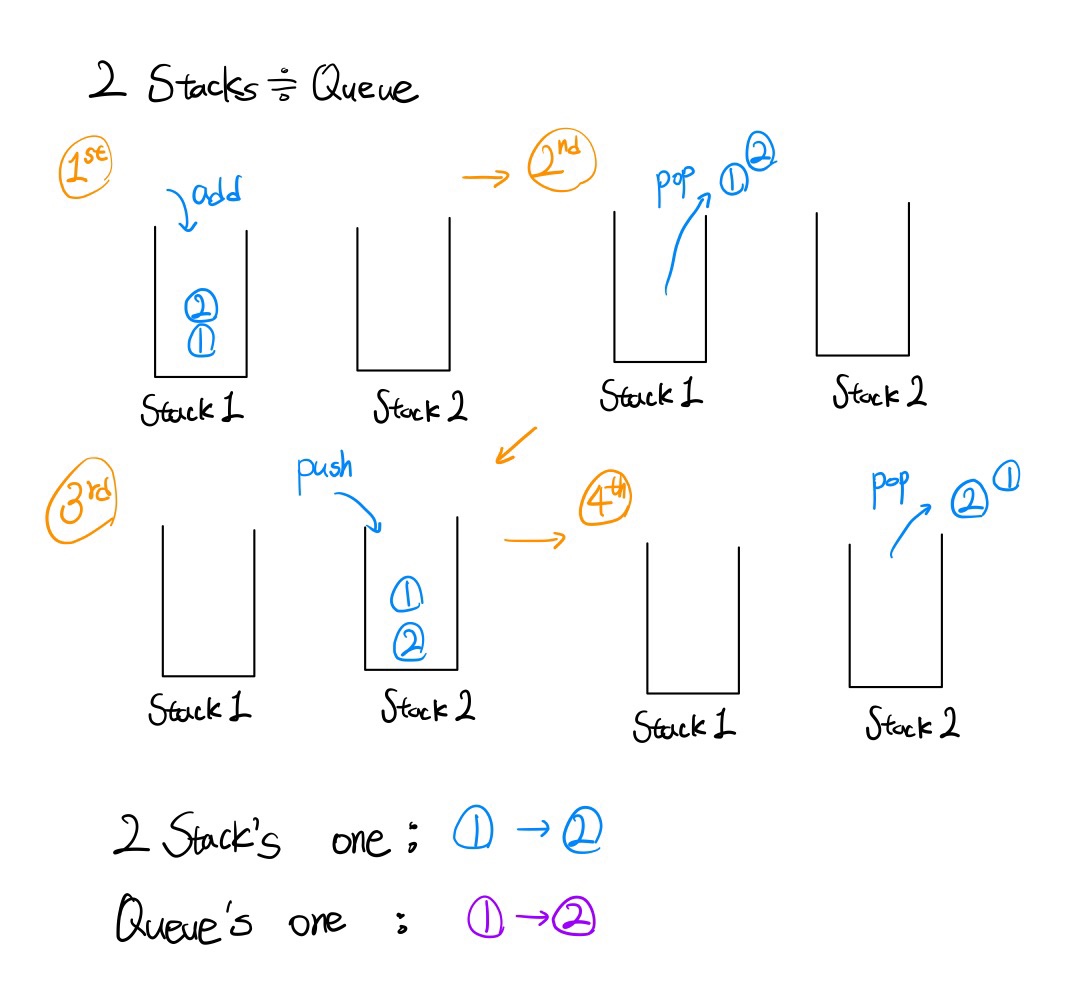 2 Stacks ≑ Queue
1st
add
②
①
Stack 1
Stack 2
→ 2nd
pop ① ②
Stack 1
Stack 2
3rd
push
①
②
Stack 1
Stack 2
→ 4th
pop ② ①
Stack 1
Stack 2
2 Stack's one : ① → ②
Queue's one : ① → ②